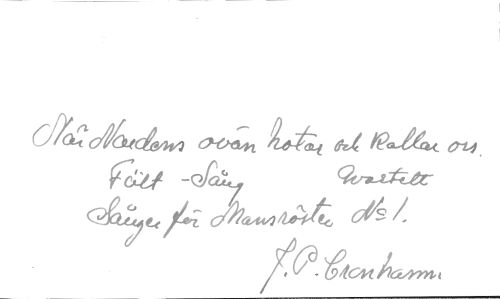 När Nordens ovän hotar och kallar oss.
Fält-Sång Qvartett
Sånger för Mansröster No 1.
J. P. Cronhamn